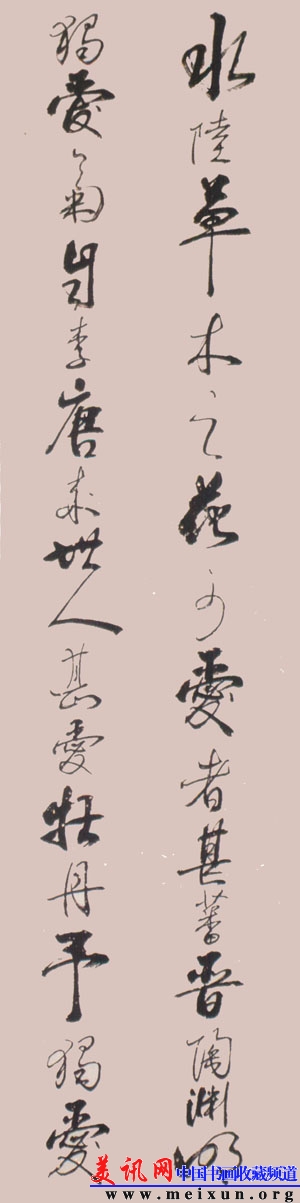 水陸草木之花可愛者甚蕃晋陶渊明
獨愛菊自李唐来世人甚愛牡丹予獨愛
美讯网 中国书画收藏频道
www.meixun.org